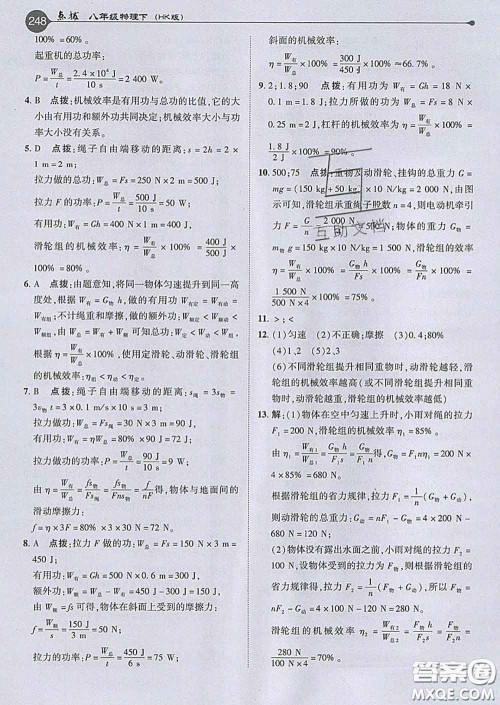 248 点拨 八年级物理下 (HK版)
100% = 60%.
起重机的总功率:
P = W总/t = 2.4×10⁴ J/10 s = 2 400 W.
4. B 点拨:机械效率是有用功与总功的比值,它的大
小由有用功和额外功共同决定,机械效率大小与功
率大小没有关系.
5. D 点拨:绳子自由端移动的距离:s = 2h = 2 ×
1 m = 2 m;
拉力做的总功:W总 = Fs = 250 N × 2 m = 500 J;
拉力 F 的功率:P = W总/t = 500 J/2 s = 250 W;
有用功:W有 = Gh = 400 N × 1 m = 400 J,
滑轮组的机械效率:η = W有/W总 × 100% = 400 J/500 J ×
100% = 80%.
6. A 点拨:由题意知,将同一物体匀速提升到同一高
度,根据 W有 = G物 h,做的有用功 W有定 = W有动 =
W有组,不计绳重和摩擦,做的额外功 W额定 < W额动 <
W额组,由 W总 = W有 + W额 可知总功:W总定 < W总动 < W总组,
根据 η = W有/W总 × 100%,使用定滑轮、动滑轮、滑轮组
的机械效率:η定 > η动 > η组.
7. B 点拨:绳子自由端移动的距离:s绳 = 3s物 =
3v物 t = 3 × 0.1 m/s × 10 s = 3 m,
拉力做的总功:W总 = Fs绳 = 50 N × 3 m = 150 J;
有用功:W有 = ηW总 = 80% × 150 J = 120 J;
拉力做功的功率:P = W总/t = 150 J/10 s = 15 W;
由 η = W有/W总 = fs物/Fs绳 = fs物/3Fs物 = f/3F 可得,物体与地面间的
滑动摩擦力:
f = η × 3F = 80% × 3 × 50 N = 120 N.
8. A 点拨:拉力 F 做的功:W总 = Fs = 150 N × 3 m =
450 J;
有用功:W有 = Gh = 500 N × 0.6 m = 300 J,
额外功:W额 = W总 - W有 = 450 J - 300 J = 150 J;
由 W额 = fs 可得,物体在斜面上受到的摩擦力:
f = W额/s = 150 J/3 m = 50 N;
拉力的功率:P = W总/t = 450 J/6 s = 75 W;
斜面的机械效率:
η = W有/W总 × 100% = 300 J/450 J × 100% ≈ 66.7%.
9. 2;1.8;90 点拨:有用功为 W有 = Gh = 18 N ×
0.1 m = 1.8 J;拉力所做的总功为 W总 = Fs = 8 N ×
0.25 m = 2 J,杠杆的机械效率为 η = W有/W总 × 100% =
1.8 J/2 J × 100% = 90%.
10. 500;75 点拨:重物及动滑轮、挂钩的总重力 G =
mg = (150 kg + 50 kg) × 10 N/kg = 2 000 N,由图
示可知,滑轮组承重绳子股数 n = 4;则电动机牵
引力 F = G/n = 2 000 N/4 = 500 N;物体的重力 G物 =
m物 g = 150 kg × 10 N/kg = 1 500 N;滑轮组的机械
效率:η = W有/W总 × 100% = G物 h/Fs × 100% = G物/nF × 100% =
1 500 N/500 N×4 × 100% = 75%.
11. >; >
12. (1)匀速 (2)不正确;摩擦 (3)0.4;80%
(4)2;1 (5)同一滑轮组提升相同重物时,动滑轮越轻,滑
轮组的机械效率越高(或不同滑轮组提升相同重物
时,动滑轮越重,机械效率越低)
13. 解:(1)物体在空中匀速上升时,小雨对绳的拉力
F₁ = 200 N,滑轮组的机械效率 η₁ = 85%,
由 η₁ = W有/W总 = G物 h/F₁s = G物 h/F₁nh = G物/nF₁ 得,
物体的重力 G物 = nF₁η₁ = 4 × 200 N × 85% =
680 N,
根据滑轮组的省力规律,拉力 F₁ = 1/n(G物 + G动),
则动滑轮的总重力:G动 = nF₁ - G物 = 4 × 200 N -
680 N = 120 N.
(2)物体没有露出水面之前,小雨对绳的拉力 F₂ =
100 N,设物体受到的拉力为 F,根据滑轮组的省
力规律有 F₂ = 1/n(F + G动),
则 F = nF₂ - G动 = 4 × 100 N - 120 N = 280 N,
滑轮组的机械效率 η₂ = W有/W总 = Fh/F₂s = Fh/F₂nh = F/nF₂ =
280 N/100 N×4 × 100% = 70%.
互助文档
答案圈
MXQE.COM